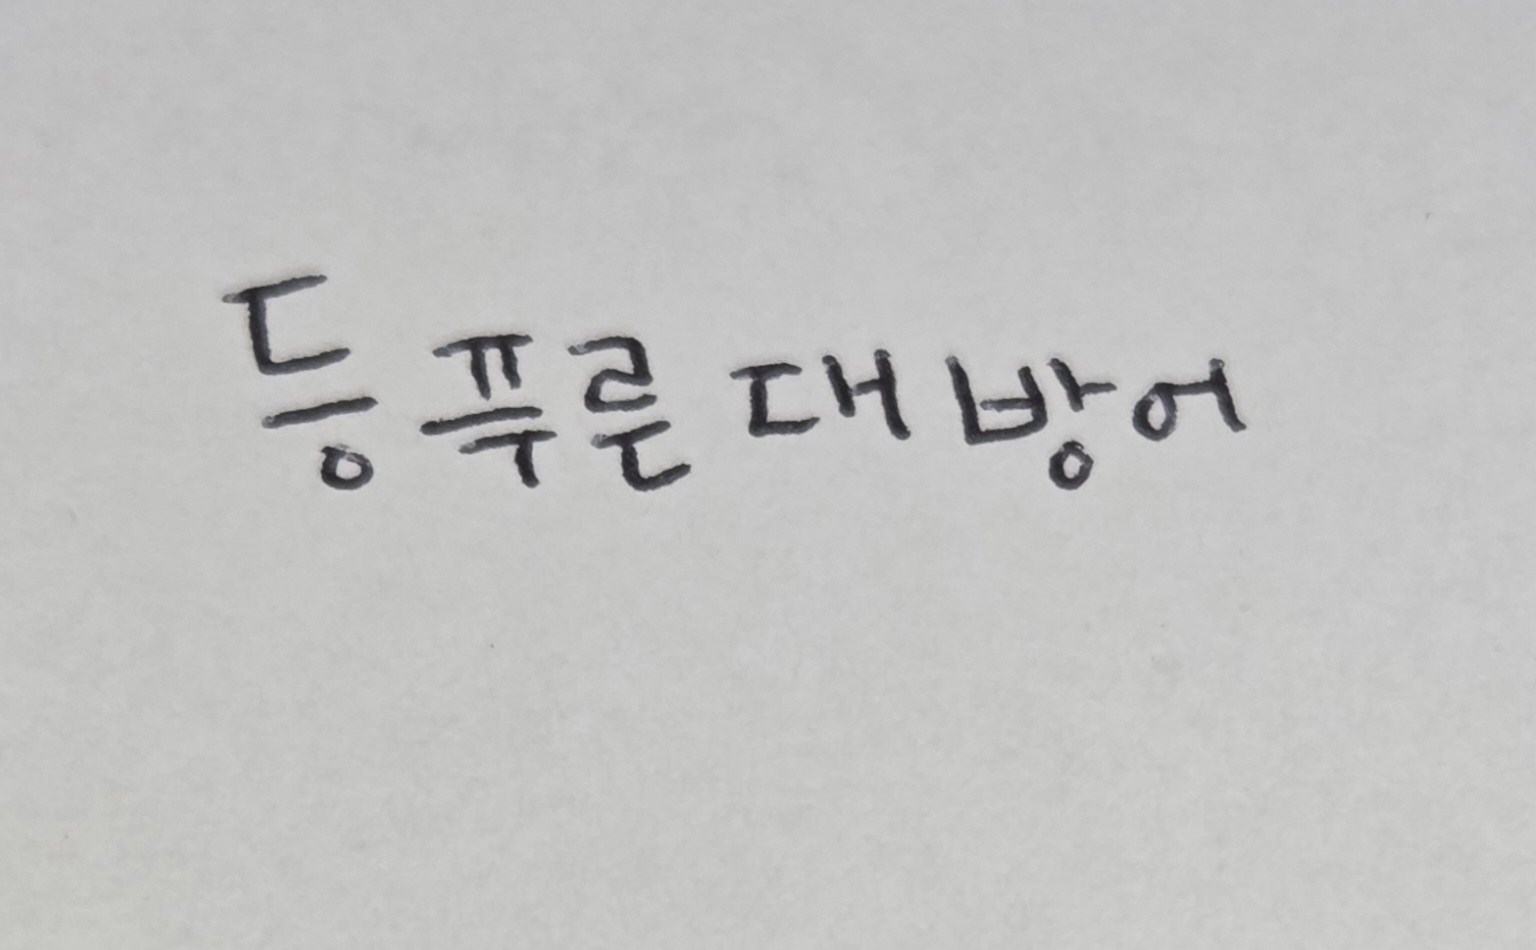 등 푸른 대방어